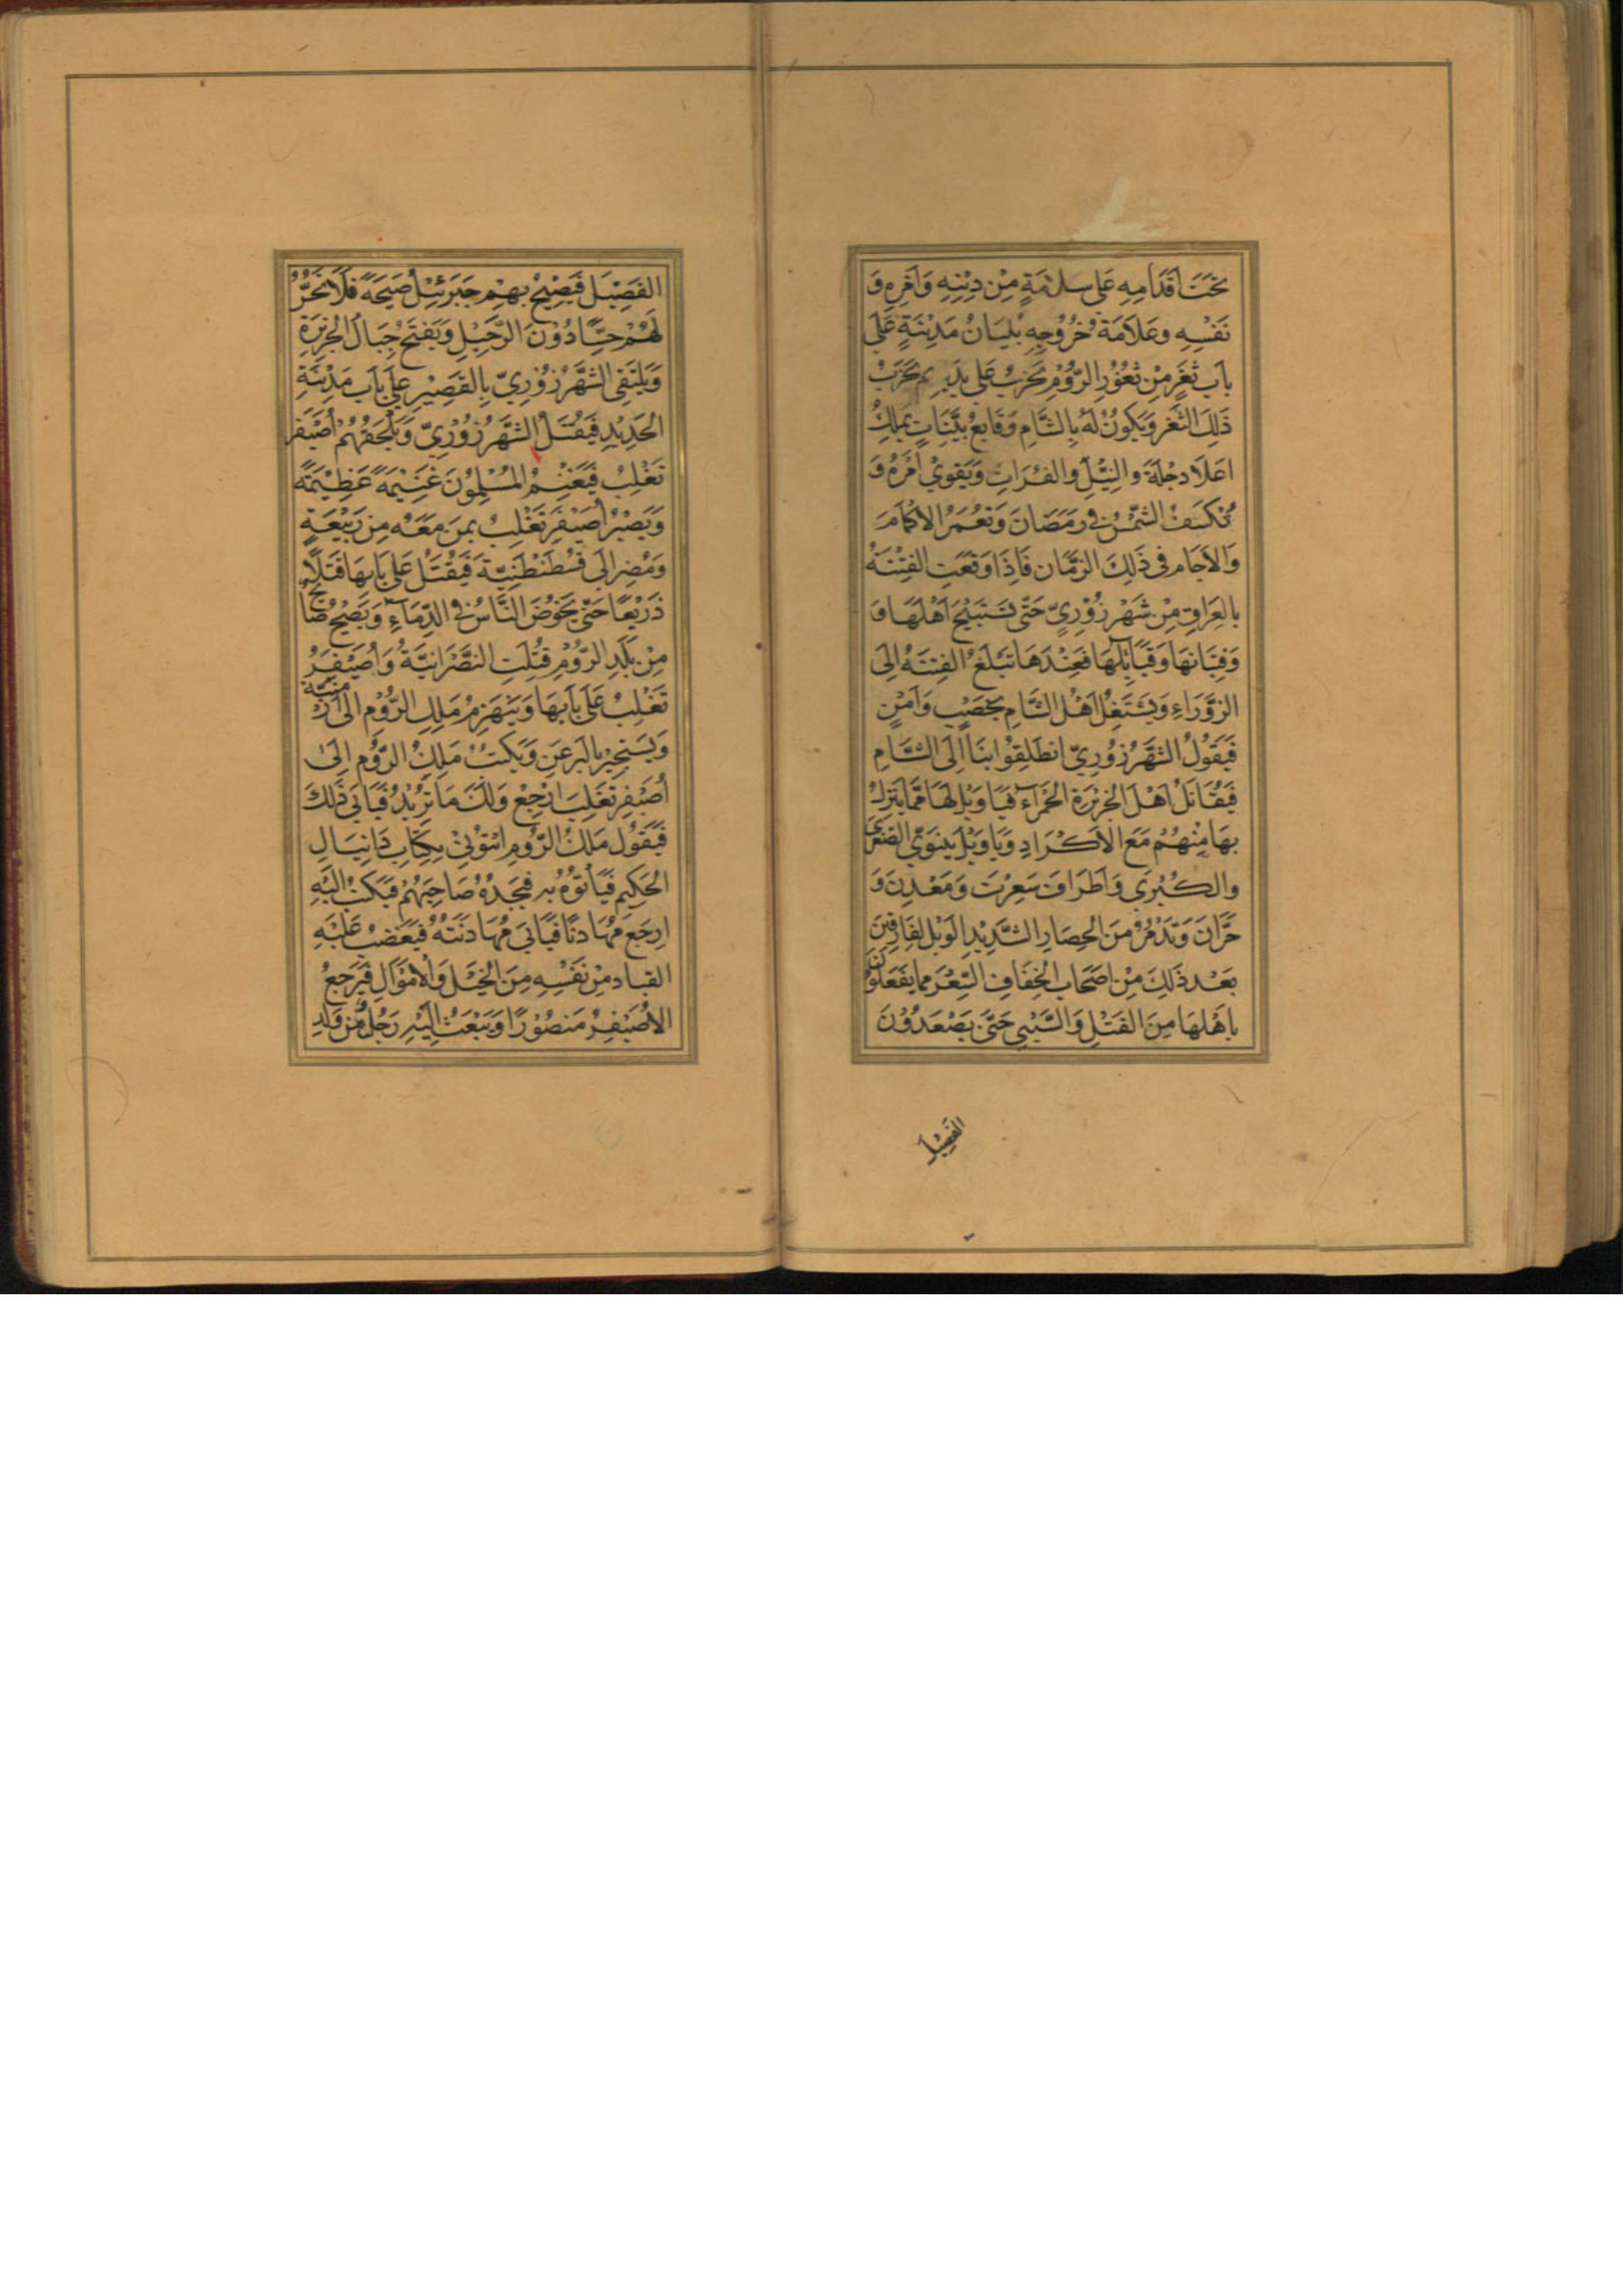 تَحْتَ اَقْدَامِهِ عَلَى سَلَامَةٍ مِنْ دِيْنِهِ وَاَمْرِهِ وَ
نَفْسِهِ وعَلَامَةُ خُرُوْجِهِ بُلْيَانُ مَدِيْنَةٍ عَلَى
بَابِ ثَغْرٍ مِنْ ثُغُوْرِ الرُّوْمِ تَخْرَبُ عَلَى يَدَيْهِ ثم يَخْرَبُ
ذَلِكَ الثَّغْرُ وَيَكُونُ لَهُ بِالشَّامِ وَقَايِعُ بَيِّنَاتٍ يَمْلِكُ
اعَلَا دِجْلَةَ والنِّيْلَ والفُرَاتِ وَيَقْوِيْ اَمْرُهُ وَ
تُنْكَسَفُ الشَّمْسُ فِي رَمَضَانَ وَتَعْمَرُ الْاكَامُ
وَالْاجَام فِى ذَلِكَ الزَّمَانِ فَاِذَا وَقَعَتِ الْفِتْنَةُ
بِالعِرَاقِ مِنْ شَهْرِزُوْرِيِّ حَتَّى تَسْتَبِيْحَ اَهْلَهَا وَ
وَفِتْيَانَهَا وَقَبَائِلَهَا فَعِنْدَهَا تَبْلَغُ الْفِتْنَةُ اِلَى
الزَّوْرَاءِ وَيَشْتَغِلُ اَهْلُ الشَّامِ بِخَصْبٍ وَاَمْنٍ
فَيَقُوْلُ الشَّهْرُزُوْرِيُّ انْطَلِقُوْا بِنَا اِلَى الشَّامِ
فَيُقَاتِلُ اَهْلَ الْجَزِيْرَةِ الْحَمْرَآءِ فَيَا وَيْلٌ لَهَا مِمَّا يَنْزِلُ
بِهَا مِنْهُمْ مَعَ الْاَكْرَادِ وَيَا وَيْلُ نِيْنَوَيَ الصُّغْرَى
والكُبْرَى وَاَطْرَافَ سَعِرْتَ وَمَعْدِنَ وَ
حَرَّانَ وَتَدْمُرُ مِنَ الْحِصَارِ الشَّدِيْدِ الْوَيْلُ لِفَارِقِيْنَ
بَعْدَ ذَلِكَ مِنْ اَصْحَابِ الْخِفَافِ السُّعْرِ مِمَّا يَفْعَلُوْنَ
بِاَهْلِهَا مِنَ القَتْلِ وَالسَّبْيِ حَتَّى يَصْعَدُوْنَ
الفَصِيْلَ
الفَصِيْلَ فَيَصِيْحُ بِهِمْ جَبْرَئِيْلُ صَيْحَةً فَلَا تَحَرُّ
لَهُمْ حِسًّا دُوْنَ الرَّحِيْلِ وَيَفْتَحُ جِبَالَ الْجَزِيْرَةِ
وَيَلْتَقِى الشَّهْرُزُوْرِيُّ بِالقَصِيْرِ عَلَى بَابِ مَدِيْنَةِ
الحَدِيْدِ فَيُقْتَلُ الشَّهْرُزُوْرِيُّ وَيَلْحَقُهُمْ اُصَيْفَرُ
تَغْلِبُ فَيَغْنَمُ الْمُسْلِمُوْنَ غَنِيْمَةً عَظِيْمَةً
وَيَصِيْرُ اُصَيْفَرُ تَغْلِبُ بِمَنْ مَعَهُ مِنْ رَبِيْعَةٍ
وَمُضَرِ اِلَى قُسْطَنْطَنِيَّةَ فَيُقْتَلُ عَلَى بَابِهَا قَتْلًا
ذَرِيْعًا حَتَّى يَخُوْضَ النَّاسُ فِي الدِّمَآءِ وَيَصِيْحُ صَائِحٌ
مِنْ بَلَدِ الرُّوْمِ قُتِلَتِ النَّصْرَانِيَّةُ وَاُصَيْفَرُ
تَغْلِبُ عَلَى بَابِهَا وَيَنْهَزِمُ مَلِكُ الرُّوْمِ اِلَى اَرْمَنِيَّة
وَيَسْتَجِيْرُ بِالبَرْعَنِ وَيَكْتُبُ مَلِكُ الرُّوْمِ اِلَى
اُصَيْفِرِ تَغْلِبَ ارْجِعْ وَلَكَ مَا تُرِيْدُ فَيَابَى ذَلِكَ
فَيَقُوْلُ مَلِكُ الرُّوْمِ ائْتُوْنِيْ بِكِتَابِ دَانِيَالِ
الحَكِيْمِ فَيَاْتُوْهُ بِهِ فَيَجِدُهُ صَاحِبَهُمْ فَيَكْتُبُ اِلَيْهِ
ارْجِعْ مُهَادِنًا فَيَابَى مُهَادَنَتَهُ فَيَعْضِبُ عَلَيْهِ
القياد مِنْ نَفْسِهِ مِنَ الْخَيْلِ وَالْامْوَالِ فَيَرْجِعُ
الْاُصَيْفِرُ مَنْصُوْرًا وَيَبْعَثُ اِلَيْهِ رَجُلٌ مِنْ وَلَدِ